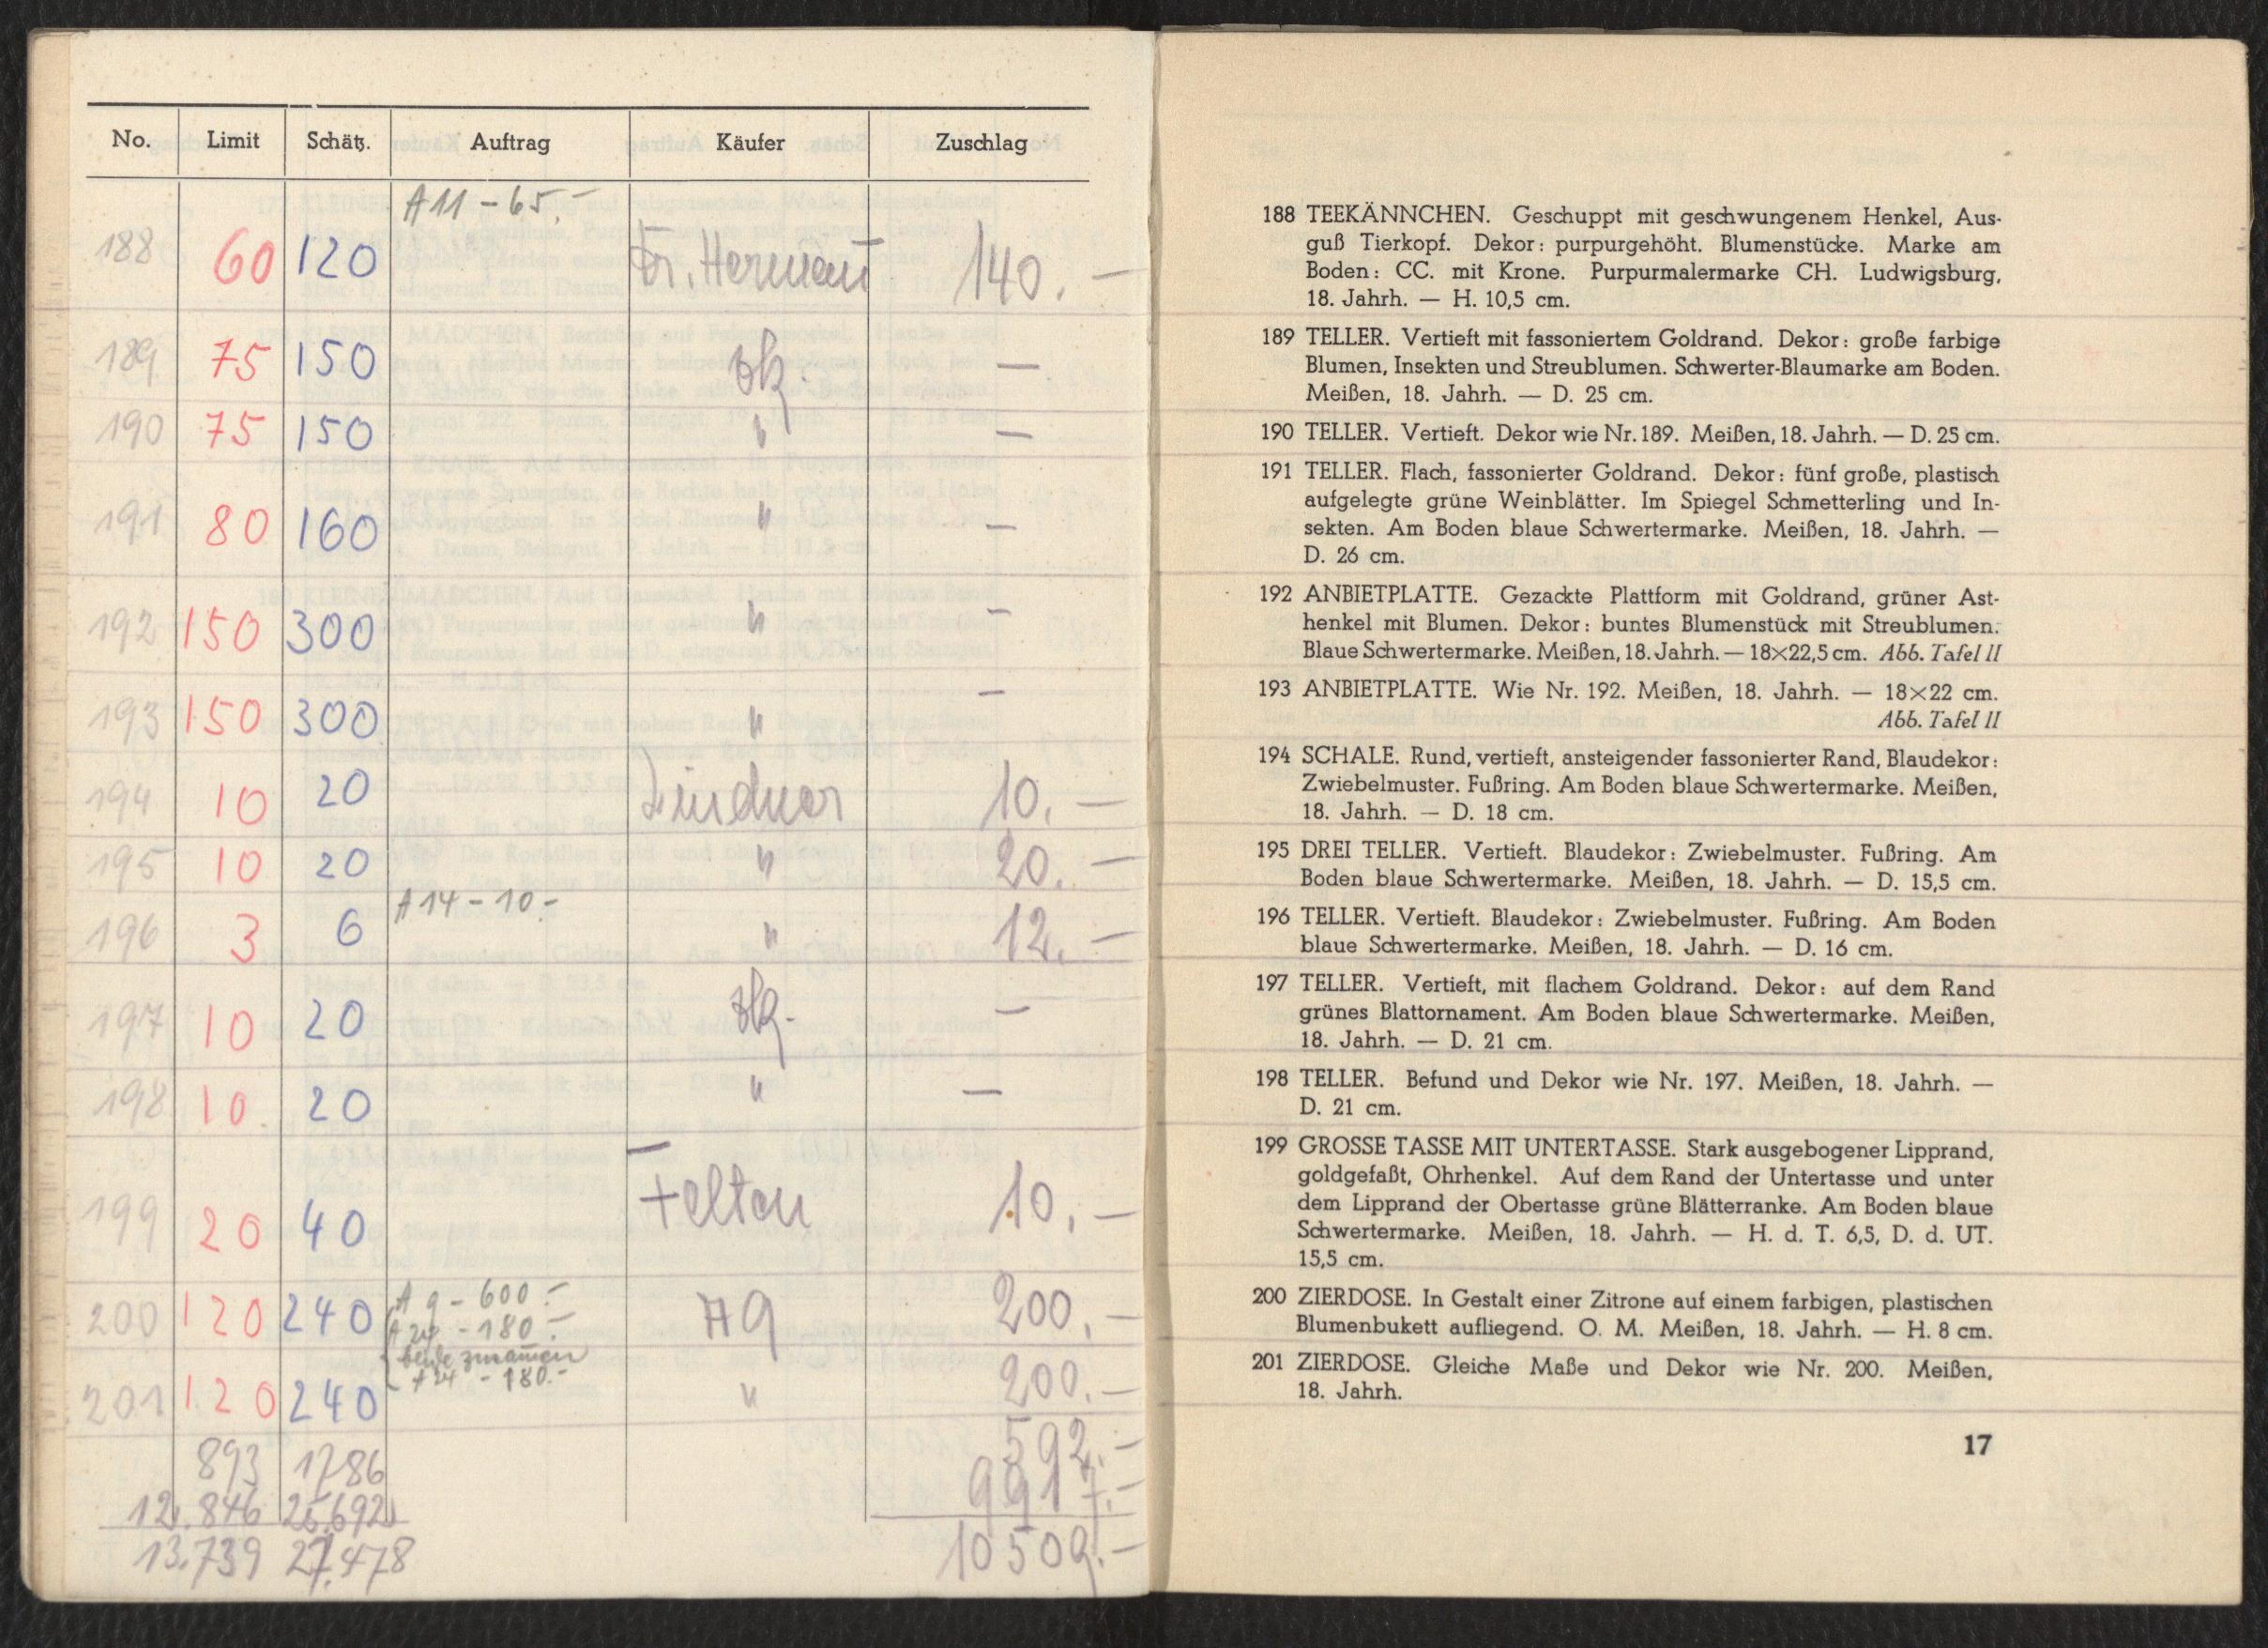 No. Limit Schätz. Auftrag Käufer Zuschlag
A 11 – 65.–
188 60 120 Dr. Hermañ 140.–
189 75 150 —
190 75 150 " —
191 80 160 " —
192 150 300 " –
193 150 300 " –
194 10 20 Lindner 10.–
195 10 20 " 20.–
A 14 – 10.–
196 3 6 " 12.–
197 10 20 —
198 10 20 " —
199 20 40 Felten 10.–
A 9 – 600.–
200 120 240 A 24 – 180.– A9 200.–
beide zusam̄en
201 120 240 A 24 – 180.– " 200.–
893 1786 592.–
12.846 25.692 9917.–
13.739 27.478 10509.–
188 TEEKÄNNCHEN. Geschuppt mit geschwungenem Henkel, Aus-
guß Tierkopf. Dekor: purpurgehöht. Blumenstücke. Marke am
Boden: CC. mit Krone. Purpurmalermarke CH. Ludwigsburg,
18. Jahrh. — H. 10,5 cm.
189 TELLER. Vertieft mit fassoniertem Goldrand. Dekor: große farbige
Blumen, Insekten und Streublumen. Schwerter-Blaumarke am Boden.
Meißen, 18. Jahrh. — D. 25 cm.
190 TELLER. Vertieft. Dekor wie Nr. 189. Meißen, 18. Jahrh. — D. 25 cm.
191 TELLER. Flach, fassonierter Goldrand. Dekor: fünf große, plastisch
aufgelegte grüne Weinblätter. Im Spiegel Schmetterling und In-
sekten. Am Boden blaue Schwertermarke. Meißen, 18. Jahrh. —
D. 26 cm.
192 ANBIETPLATTE. Gezackte Plattform mit Goldrand, grüner Ast-
henkel mit Blumen. Dekor: buntes Blumenstück mit Streublumen.
Blaue Schwertermarke. Meißen, 18. Jahrh. — 18×22,5 cm. Abb. Tafel II
193 ANBIETPLATTE. Wie Nr. 192. Meißen, 18. Jahrh. — 18×22 cm.
Abb. Tafel II
194 SCHALE. Rund, vertieft, ansteigender fassonierter Rand, Blaudekor:
Zwiebelmuster. Fußring. Am Boden blaue Schwertermarke. Meißen,
18. Jahrh. — D. 18 cm.
195 DREI TELLER. Vertieft. Blaudekor: Zwiebelmuster. Fußring. Am
Boden blaue Schwertermarke. Meißen, 18. Jahrh. — D. 15,5 cm.
196 TELLER. Vertieft. Blaudekor: Zwiebelmuster. Fußring. Am Boden
blaue Schwertermarke. Meißen, 18. Jahrh. — D. 16 cm.
197 TELLER. Vertieft, mit flachem Goldrand. Dekor: auf dem Rand
grünes Blattornament. Am Boden blaue Schwertermarke. Meißen,
18. Jahrh. — D. 21 cm.
198 TELLER. Befund und Dekor wie Nr. 197. Meißen, 18. Jahrh. —
D. 21 cm.
199 GROSSE TASSE MIT UNTERTASSE. Stark ausgebogener Lipprand,
goldgefaßt, Ohrhenkel. Auf dem Rand der Untertasse und unter
dem Lipprand der Obertasse grüne Blätterranke. Am Boden blaue
Schwertermarke. Meißen, 18. Jahrh. — H. d. T. 6,5, D. d. UT.
15,5 cm.
200 ZIERDOSE. In Gestalt einer Zitrone auf einem farbigen, plastischen
Blumenbukett aufliegend. O. M. Meißen, 18. Jahrh. — H. 8 cm.
201 ZIERDOSE. Gleiche Maße und Dekor wie Nr. 200. Meißen,
18. Jahrh.
17